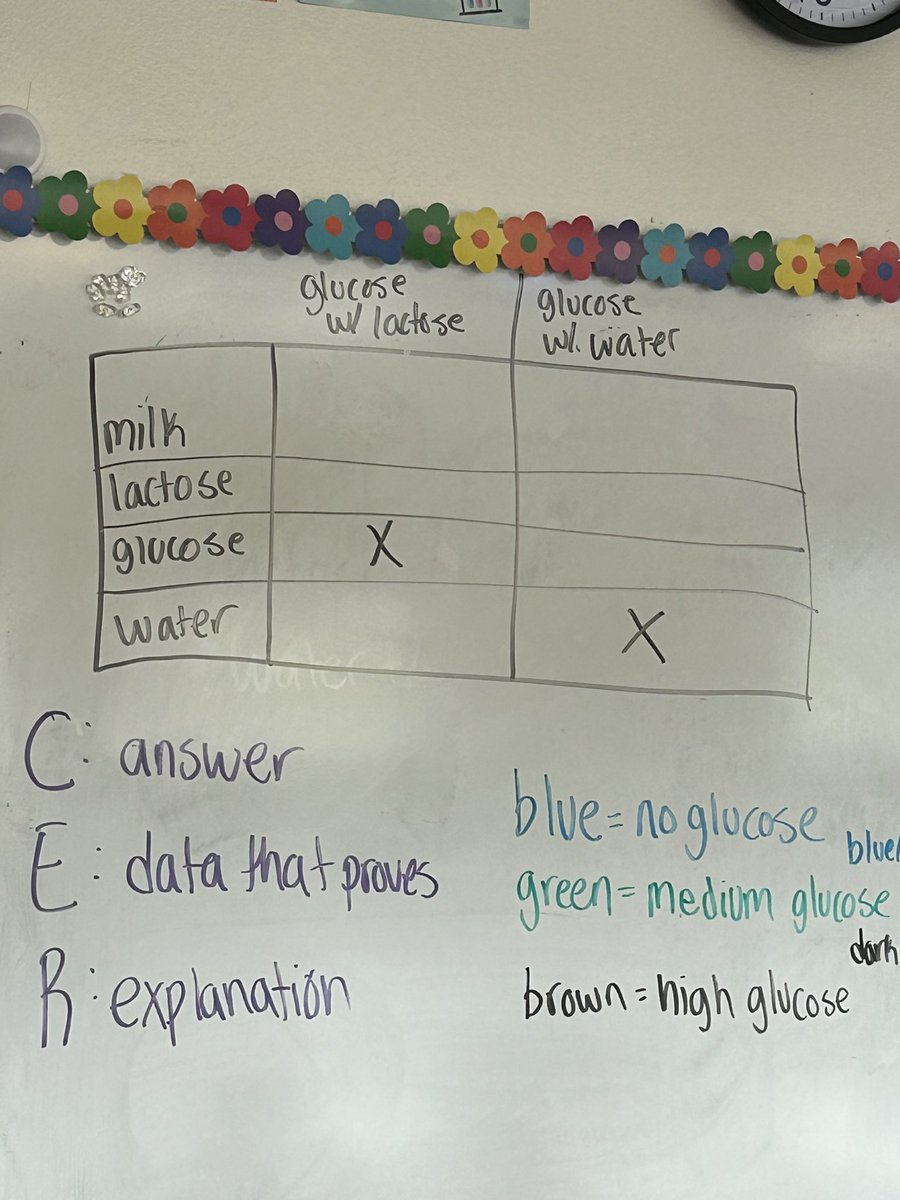 glucose
w/ lactose
glucose
w/. water
milk
lactose
glucose X
water X
C: answer
E: data that proves
R: explanation
blue = no glucose
blue/
green = medium glucose
dark
brown = high glucose